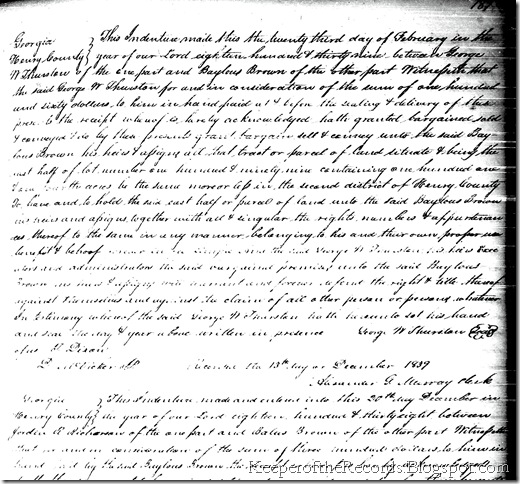 Georgia } This Indenture made this the twenty third day of February in the
Henry County } year of our Lord eighteen hundred & thirty nine between George
W Thurston of the one part and Baylous Brown of the other part Witnesseth that
the said George W Thurston for and in consideration of the sum of one hundred
and sixty dollars to him in hand paid at & before the sealing & delivery of these
presents the receipt whereof is hereby acknowledged hath granted bargained sold
& conveyed & do by these presents grant bargain sell & convey unto the said Bay
lous Brown his heirs & assigns all that tract or parcel of land situate & being the
east half of lot number one hundred & ninety nine containing one hundred one
& one fourth acres be the same more or less in the second district of Henry County
To have and to hold the said east half or parcel of land unto the said Baylous Brown
his heirs and assigns together with all & singular the rights members & appurtenan
ces thereof to the same in any manner belonging to his and their own proper use
benefit & behoof forever in fee simple and the said George W Thurston his heirs Exec
utors and administrators the said bargained premises unto the said Baylous
Brown his heirs & assigns will warrant and forever defend the right & title thereof
against themselves and against the claim of all other person or persons whatever
In testimony whereof the said George W Thurston hath hereunto set his hand
and seal the day & year above written in presence George W Thurston
of us Dixon
Recorded the 13th day of December 1839
Alexander G. Murray Clerk
Georgia } This Indenture made and entered into this 20th day December in
Henry County } the year of our Lord eighteen hundred & thirty eight between
of the one part and Balus Brown of the other part Witnesseth
that in consideration of the sum of three hundred dollars to him in
hand paid by the said Baylous Brown
KeeperoftheRecords.Blogspot.com